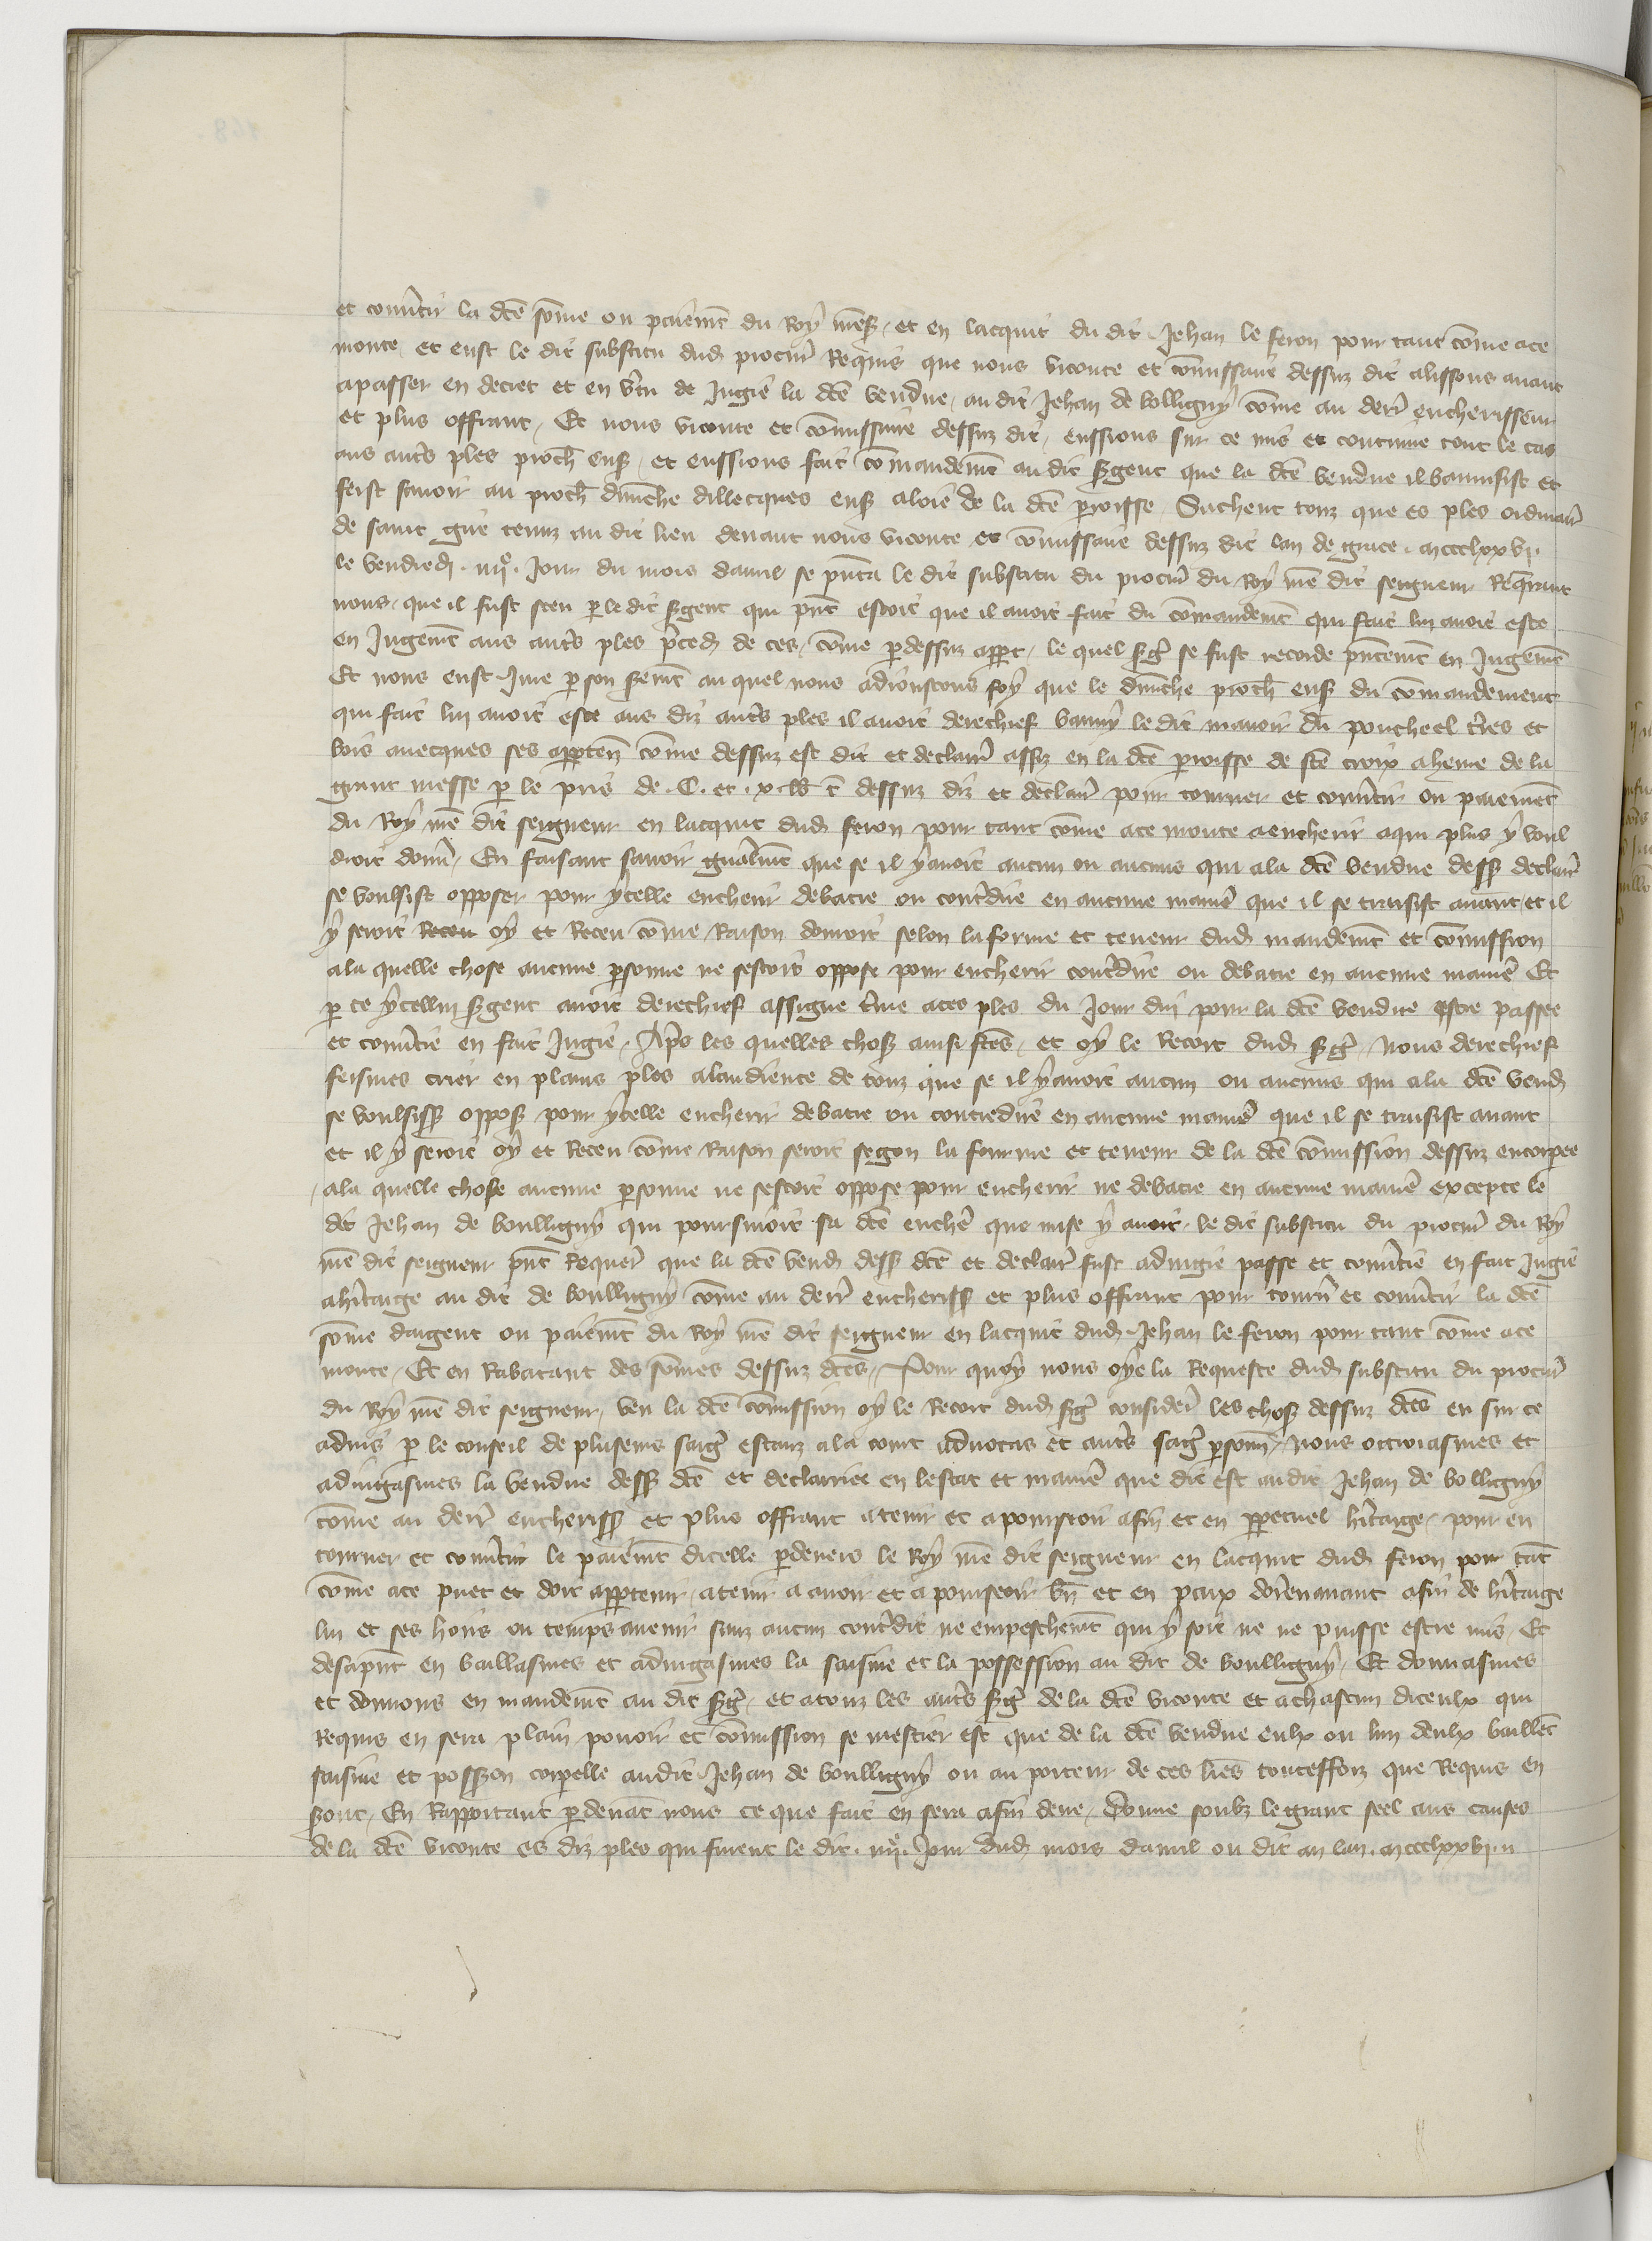 et conv̄tir la dcē som̄e ou paiem̄t du Roy nr̄e ſ et en lacquit du dit Jehan le feron pour tant com̄e ace
monte et eust le dit substitu dud procur̄ Requis que nous viconte et com̄issaire dessuz dit alissons avant
apasser en decret et en v̄tu de Jugié la dcē vendue au dit Jehan de bolligny com̄e au derr̄ encherisseur
et plus offrant / Et nous viconte et com̄issaire dessuz dit / eussions sur ce mis et continue tout le cas
aus autr̄s ples proch̄ ens / et eussions fait com̄andem̄t au dit sergent que la dcē vendue il bannisist et
feist savoir au proch̄ dim̄che dillecques ens aloie de la dcē p̱roisse Sachent touz que es ples ordinair̄
de saint gire tenuz au dit lieu devant nous viconte et com̄issaire dessuz dit lan de grace mccclxxvj
le vendredj iiije Jour du mois davril se pñta le dit substitu du procur̄ du Roy nr̄e dit seigneur Req̄rant
nous / que il fust sceu p̱ le dit sergent qui pñt estoit que il avoit fait du com̄andem̄t qui fait lui avoit este
en Jugem̄t aus autr̄s ples p̄ced de ces / com̄e p̱dessuz app̱t / le quel serg̃ se fust recorde pñtem̄t en Jugem̄t
Et nous eust Jure p̱ son serem̄t au quel nous adjoustons foy que le dim̄che proch̄ ens du com̄andement
qui fait lui avoit este aus diz autr̄s ples il avoit derechief banny le dit manoir du poncheel t̄res et
bois avecques ses app̱ten̄ com̄e dessuz est dit et declair̄ assis en la dcē p̱roisse de scē croix a heure de la
grant messe p̱ le pris de C et x lb t̄ dessuz diz et declair̄ pour tourner et conv̄tir ou paiem̄t
du Roy nr̄e dit seigneur en lacquit dud feron pour tant com̄e ace monte aencherir aqui plus y voul
droit donn̄ / En faisant savoir gñalm̄t que se il y avoit aucun ou aucuns qui ala dcē vendue dess declair̄
se voulsist opposer pour ycelle encherir debatre ou cont̄dire en aucune manie᷑ que il se traisist avant et il
y seroit Receu oy et Receu com̄e Raison donroit selon la forme et teneur dud mandem̄t et com̄ission
ala quelle chose aucune p̱sonne ne sestoit oppose pour encherir cont̄dire ou debatre en aucune manie᷑ Et
p̱ ce ycellui sergent avoit derechief assigne t̄me aces ples du Jour duj pour la dcē vendue estre passee
et conv̄tie en fait Jugie / Ap̄s les quelles chos ainsi fcēs / et oy le Recort dud serg̃ / Nous derechief
feismes crier en plains ples alaudience de touz que se il y avoit aucun ou aucuns qui ala dcē vend
se voulsiss oppos pour ycelle encherir debatre ou contredire en aucune manie᷑ que il se traisist avant
et il y seroit oy et Receu com̄e Raison seroit segon la fourme et teneur de la dcē com̄ission dessuz encorp̱ee
/ ala quelle chose aucune p̱sonne ne sestoit oppose pour encherir ne debatre en aucune manie᷑ excepte le
dit Jehan de boulligny qui poursuioit sa dcē enchie᷑ que mise y avoit / le dit substitu du procur̄ du Roy
nr̄e dit seigneur pñt Requer̄ que la dcē vend dess dcē et declair̄ fust adjugie passe et conv̄tie en fait Jugie
ahītaige au dit de boulligny com̄e au derr̄ encheriss et plus offrant pour tourn̄ et conv̄tir la dcē
som̄e dargent ou paiem̄t du Roy nr̄e dit seigneur en lacquit dud Jehan le feron pour tant com̄e ace
monte / Et en Rabatant des som̄es dessuz dcēs / Pour quoy nous oye la Requeste dud substitu du procur̄
du Roy nr̄e dit seigneur / veu la dcē com̄ission oy le Recort dud serg̃ consider̄ les chos dessuz dcēs eu sur ce
advis p̱ le conseil de pluseurs saig̃ estanz ala court advocas et autr̄s saig̃ p̱sonn̄ / Nous octroiasmes et
adjugasmes la vendue dess dcē et declairiee en lestat et manie᷑ que dit est au dit Jehan de bolligny
com̄e au derr̄ encheriss et plus offrant atenir et apourseoir afin et en p̱petuel hītaige / pour en
tourner et conv̄tir le paiem̄t dicelle p̱devers le Roy nr̄e dit seigneur en lacquit dud feron pour tāt
com̄e ace puet et doit app̱tenir / atenir a avoir et a pourseoir bñ et en paix dorenavant afin de hītaige
lui et ses hoirs ou temps avenir sanz aucun cont̄dit ne empeschem̄t qui y soit ne ne puisse estre mis / Et
desapñt en baillasmes et adjugasmes la saisine et la possession au dit de boulligny / Et donnasmes
et donnons en mandem̄t au dit serg̃ / et atouz les autr̄s serg̃ de la dcē viconte et achascun diceulx qui
Requis en sera plain povoir et com̄ission se mestier est que de la dcē vendue eulx ou lun deulx baillēt
saisine et poss̄ion corp̱elle audit Jehan de boulligny ou au porteur de ces lr̄es touteffoiz que Requis en
seront / En Rapportant p̱devāt nous ce que fait en sera afin deue / Donne soubz le grant seel aus causes
de la dcē viconte es diz ples qui furent le dit iiije Jour dud mois davril ou dit an lan mccclxxvj